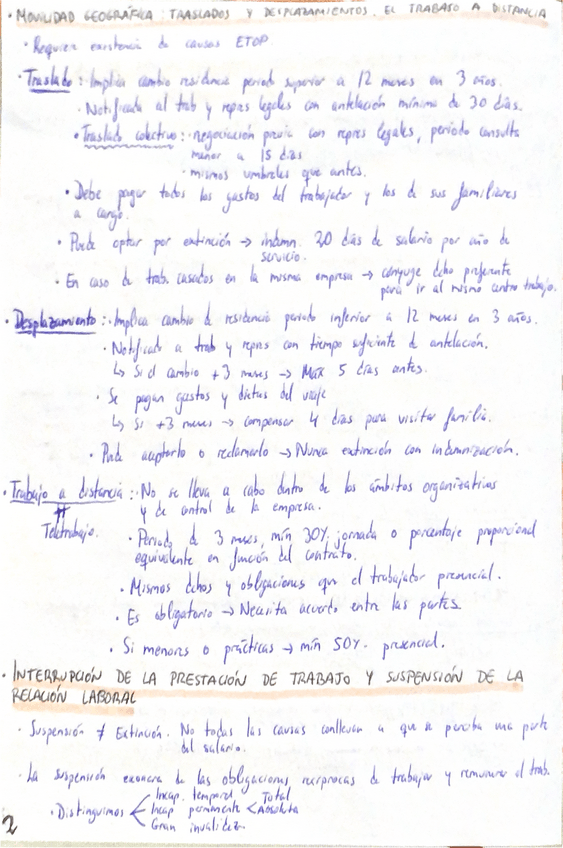 · MOVILIDAD GEOGRÁFICA: TRASLADOS Y DESPLAZAMIENTOS. EL TRABAJO A DISTANCIA
· Requiere existencia de causas ETOP.
· Traslado: · Implica cambio residencia periodo superior a 12 meses en 3 años.
· Notificada al trab y repres legales con antelación mínima de 30 días.
· Traslado colectivo: · negociación previa con repres legales, periodo consulta
menor a 15 días
· mismos umbrales que antes.
· Debe pagar todos los gastos del trabajador y los de sus familiares
a cargo.
· Puede optar por extinción → indemn. 20 días de salario por año de
servicio.
· En caso de trab. casados en la misma empresa → cónyuge dcho preferente
para ir al mismo centro trabajo.
· Desplazamiento: · Implica cambio de residencia periodo inferior a 12 meses en 3 años.
· Notificado a trab y repres con tiempo suficiente de antelación.
↳ Si el cambio +3 meses → Max 5 días antes.
· Se pagan gastos y dietas del viaje
↳ Si +3 meses → compensar 4 días para visitar familia.
· Puede aceptarlo o reclamarlo → Nunca extinción con indemnización.
· Trabajo a distancia: · No se lleva a cabo dentro de los ámbitos organizativos
y de control de la empresa.
≠
Teletrabajo.
· Periodo de 3 meses, mín 30% jornada o porcentaje proporcional
equivalente en función del contrato.
· Mismos dchos y obligaciones que el trabajador presencial.
· Es obligatorio → Necesita acuerdo entre las partes.
· Si menores o prácticas → mín 50% presencial.
· INTERRUPCIÓN DE LA PRESTACIÓN DE TRABAJO Y SUSPENSIÓN DE LA
RELACIÓN LABORAL
· Suspensión ≠ Extinción. No todas las causas conllevan a que se perciba una parte
del salario.
· La suspensión exonera de las obligaciones recíprocas de trabajar y remunerar el trab.
· Distinguimos < Incap. temporal
Incap permanente < Total
Absoluta
Gran invalidez.
2